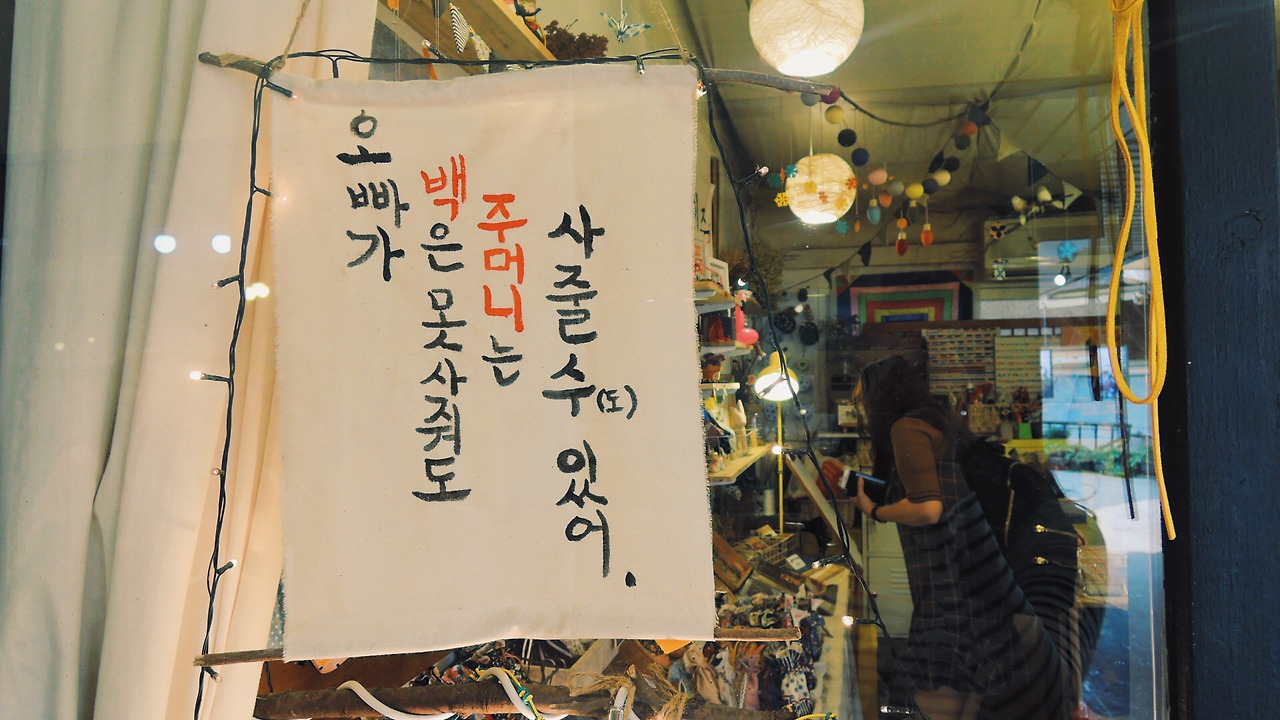 오빠가
백은 못사줘도
주머니는
사줄수(도) 있어.